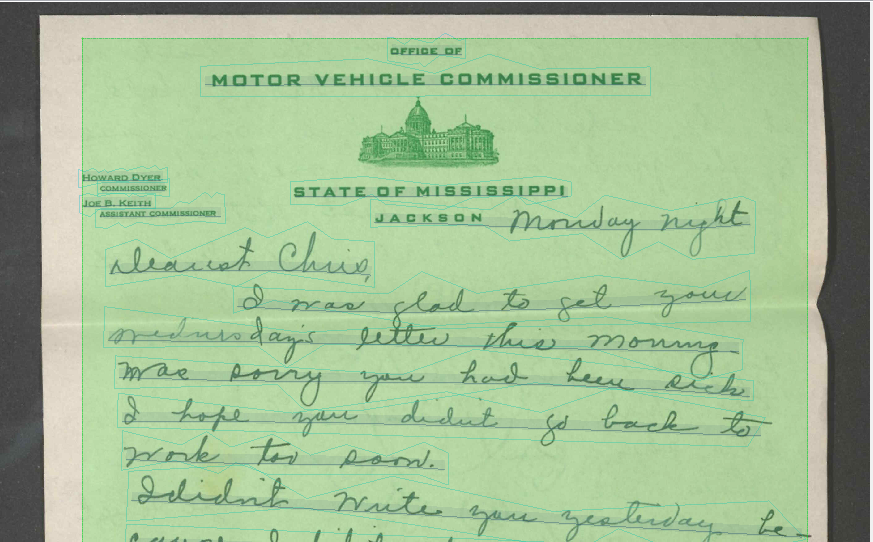 OFFICE OF
MOTOR VEHICLE COMMISSIONER
HOWARD DYER
COMMISSIONER
JOE B. KEITH
ASSISTANT COMMISSIONER
STATE OF MISSISSIPPI
JACKSON Monday night
Dearest Chris,
I was glad to get your
Wednesday's letter this morning
was sorry you had been sick
I hope you didn't go back to
work too soon.
I didn't write you yesterday be-
cause I